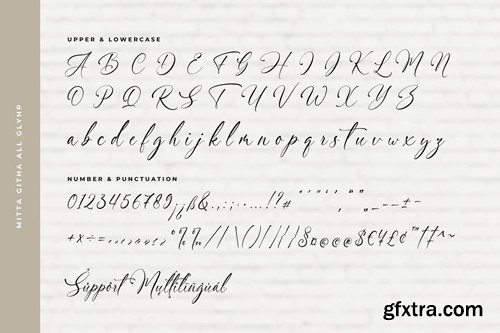 MITTA GITHA ALL GLYHP
UPPER & LOWERCASE
A B C D E F G H I J K L M N
O P Q R S T U V W X Y Z
a b c d e f g h i j k l m n o p q r s t u v w x y z
NUMBER & PUNCTUATION
0123456789
Support Multilingual
gfxtra.com